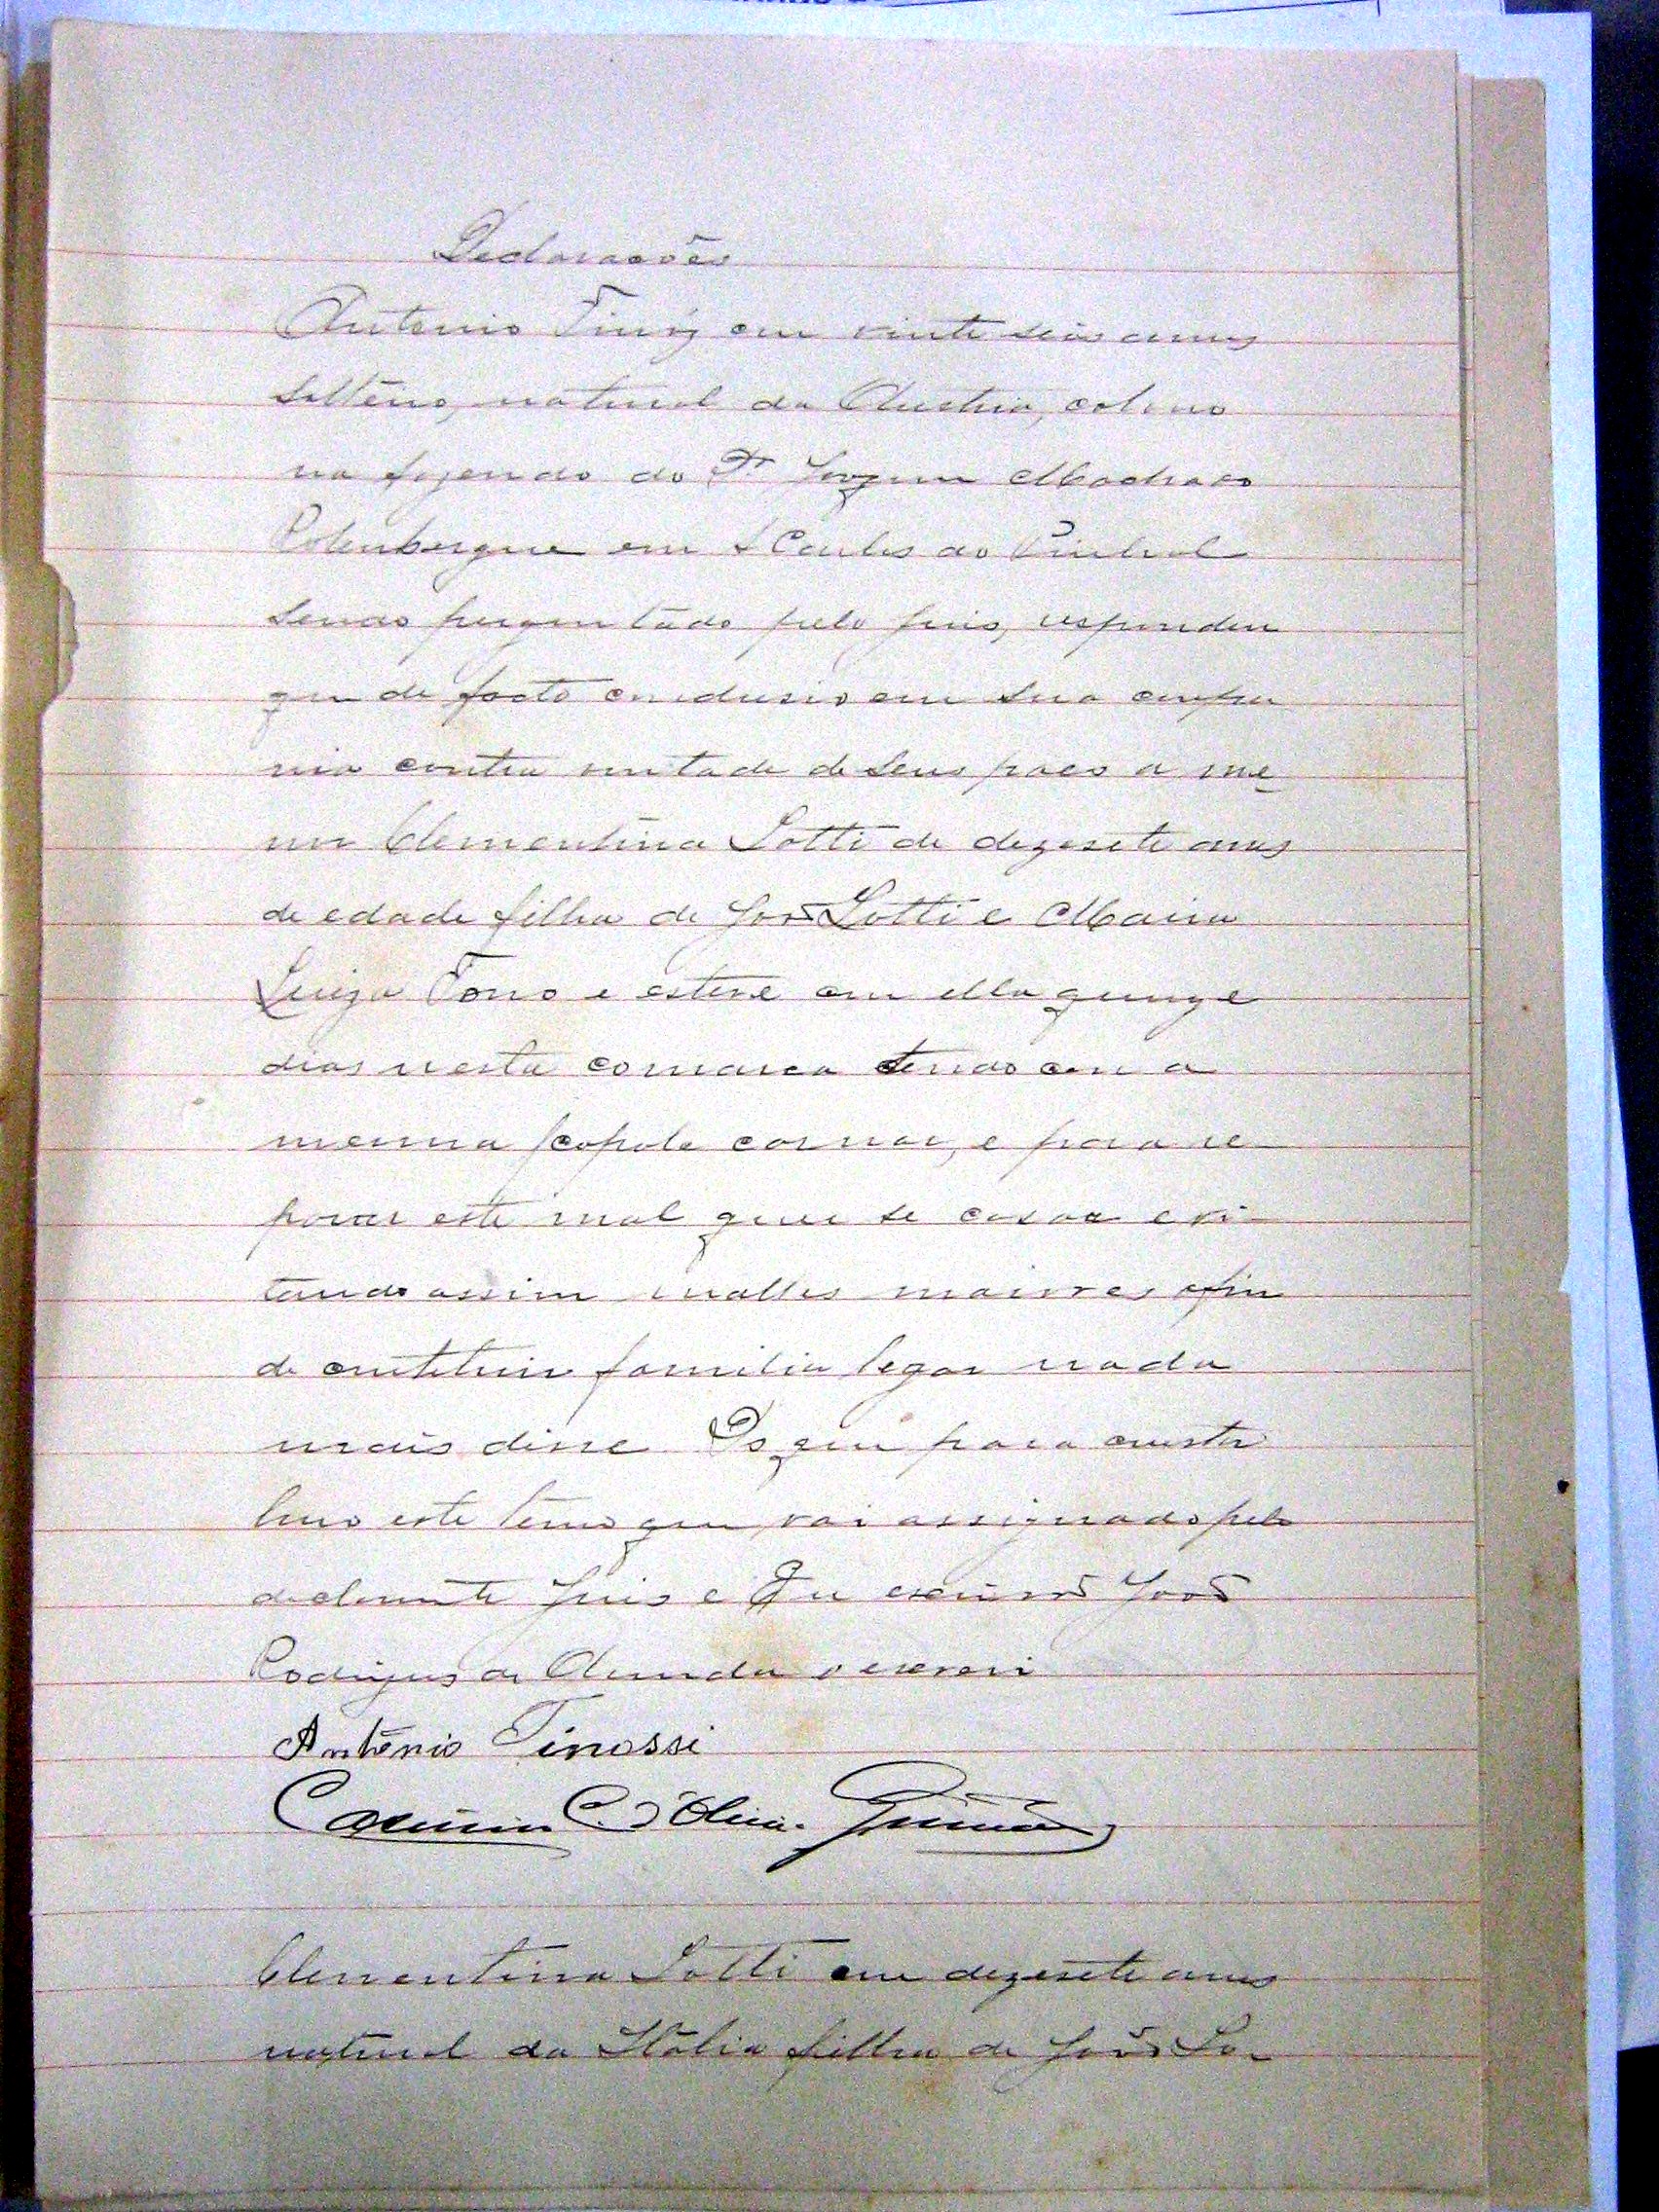 Declarações
Antonio com vinte seis annos
solteiro, natural da Austria, colono
na fazenda do Dr Machado
em S Carlos do Pinhal
sendo perguntado pelo juis, respondeu
que de facto condusio em sua compa
nia contra vontade de seus paes a me
nor Clementina Lotti de dezesete annos
de edade filha de João Lotti e Maria
Luiza e esteve com ella quinze
dias nesta comarca tendo com a
mesma copola carnal, e para re
parar este mal quer se casar evi
tando assim malles maiores afim
de constituir familia legar nada
mais disse Do que para constar
lavro este termo que vai assignado pelo
declarante juis e Eu escrivão João
Rodrigues de Almeida o escrevi
Antonio Tinossi
Clementina Lotti com dezesete annos
natural da Italia filha de João Lo